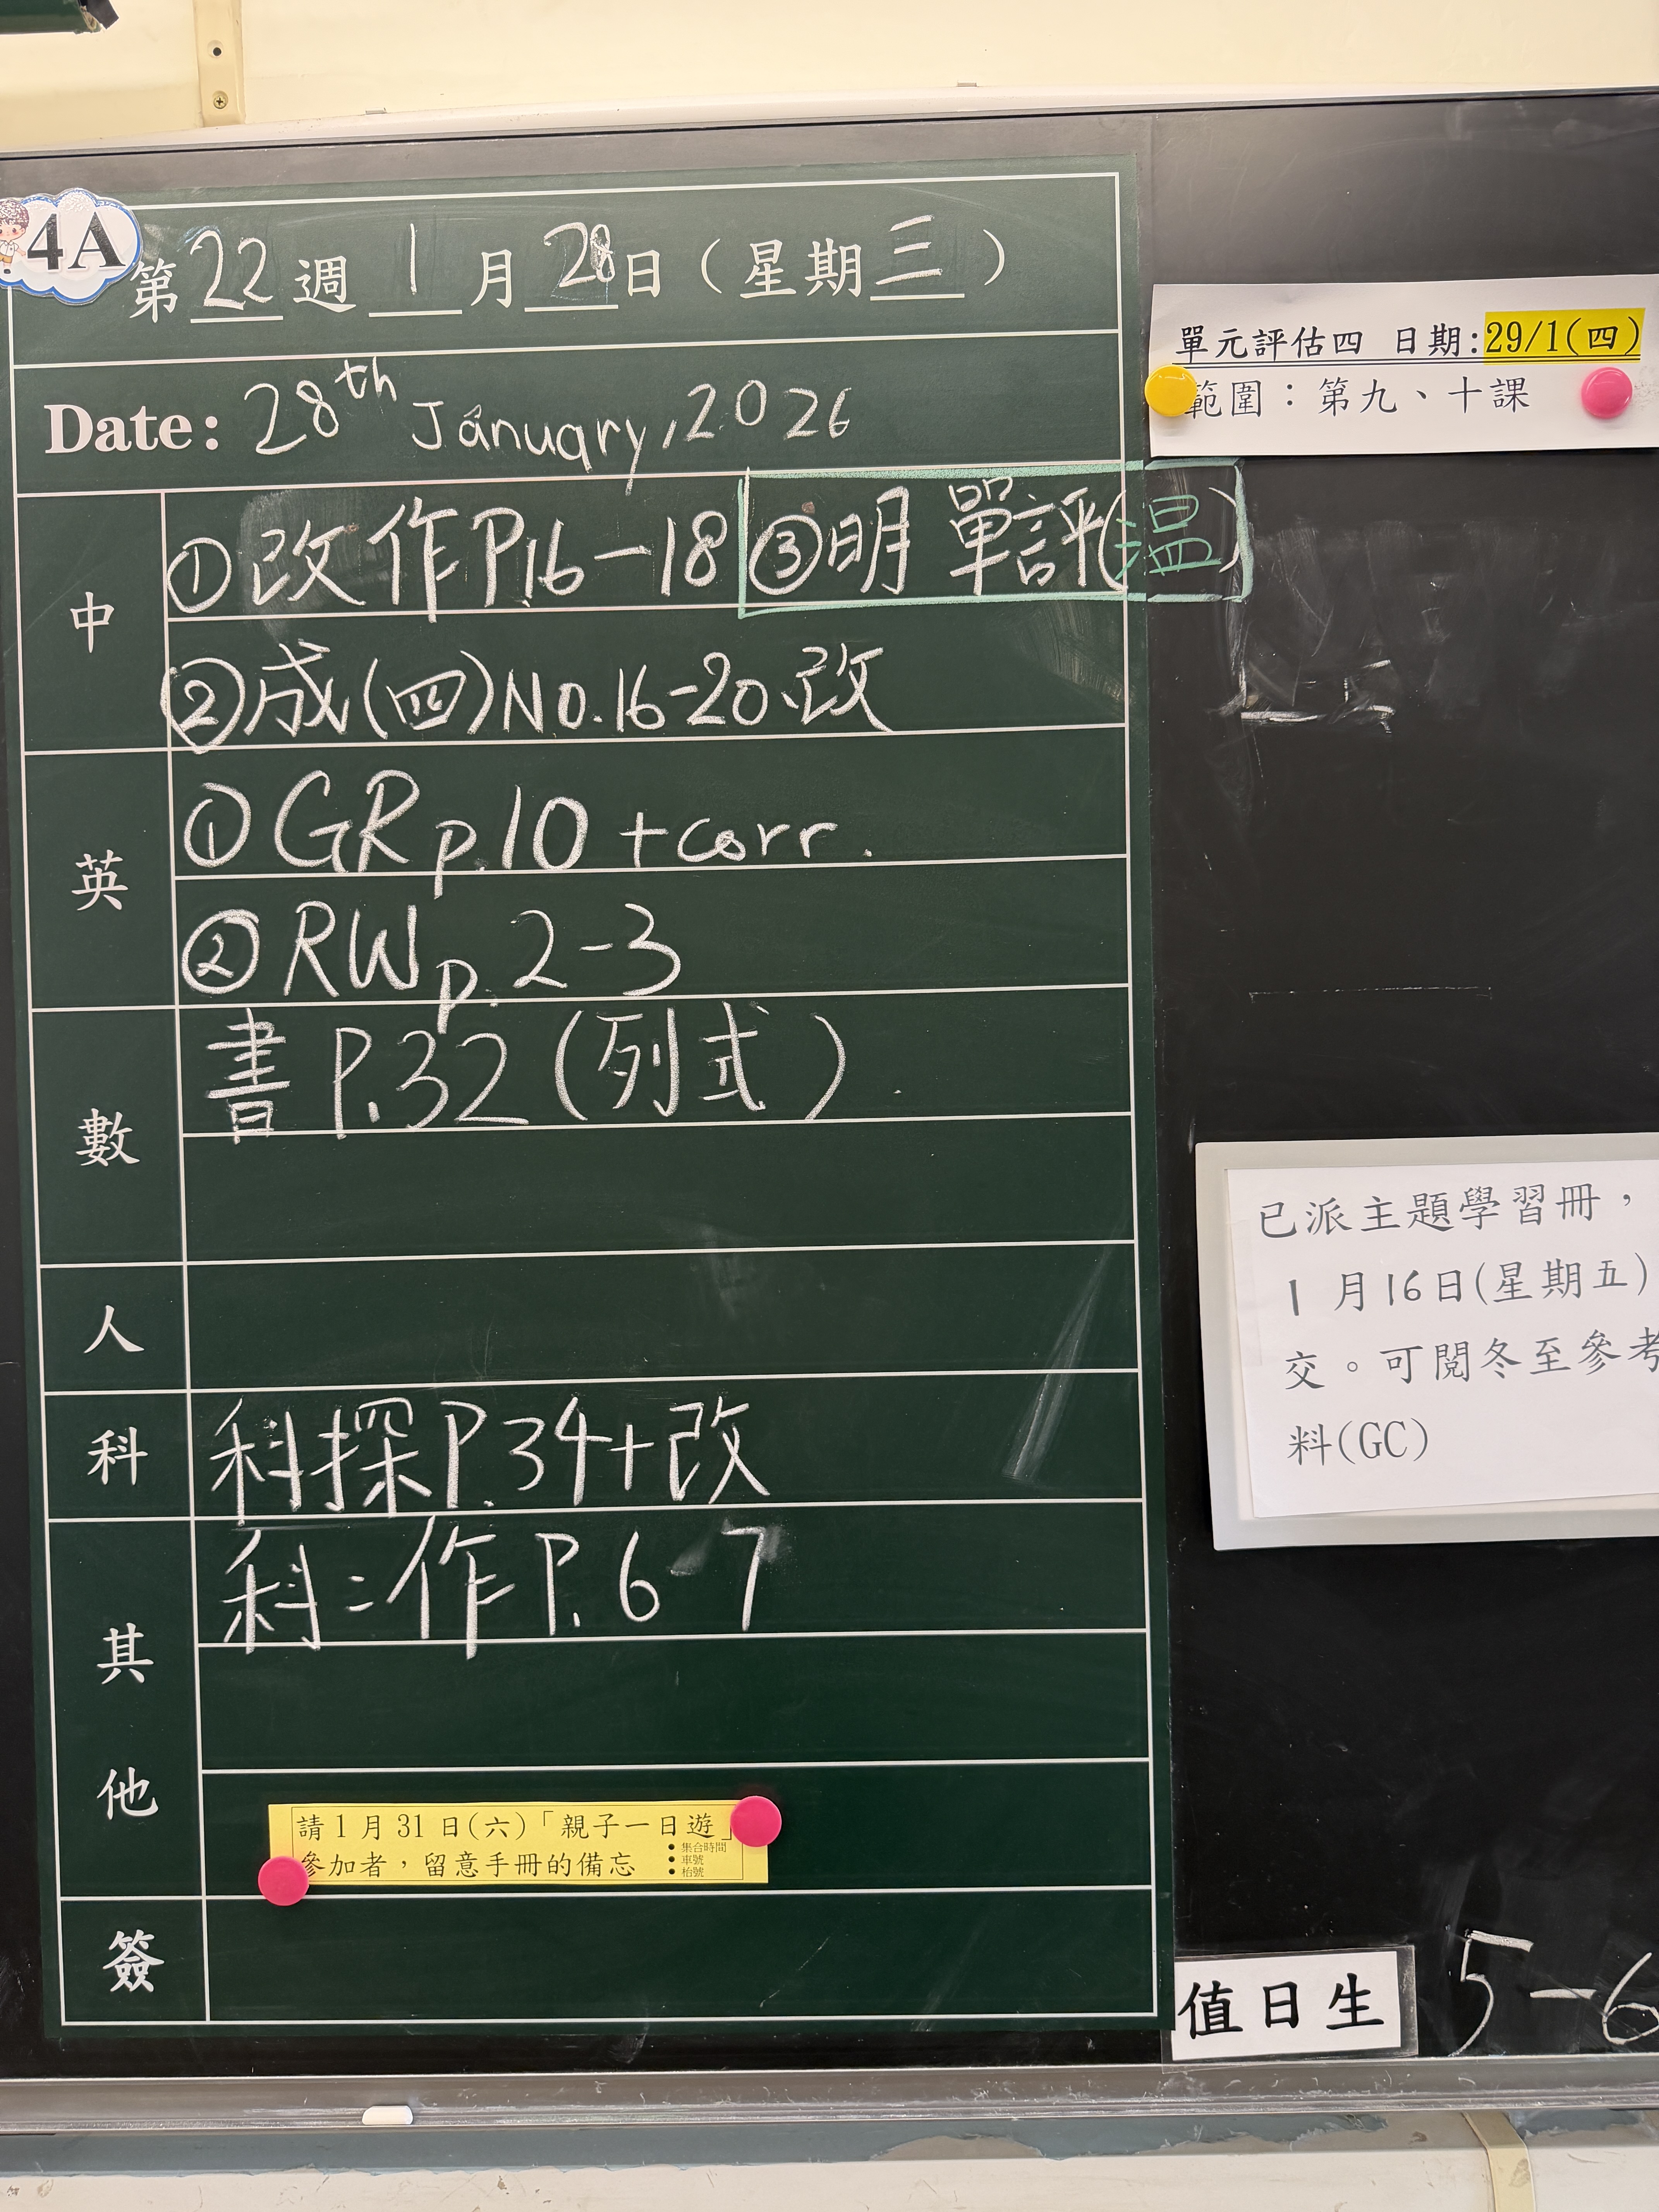 4A
第22週1月28日（星期三）
Date: 28th January, 2026
中
①改作P.16-18 ③明 單評(温)
②成(四)No.16-20改
英
①GR p.10 +corr.
②RW p.2-3
數
書P.32(列式)
人
科
科探P.34+改
其他
科：作P.6-7
請1月31日(六)「親子一日遊」
參加者，留意手冊的備忘
• 集合時間
• 車號
• 枱號
簽
單元評估四 日期:29/1(四)
範圍：第九、十課
已派主題學習冊，
1月16日(星期五)
交。可閱冬至參考
料(GC)
值日生 5-6